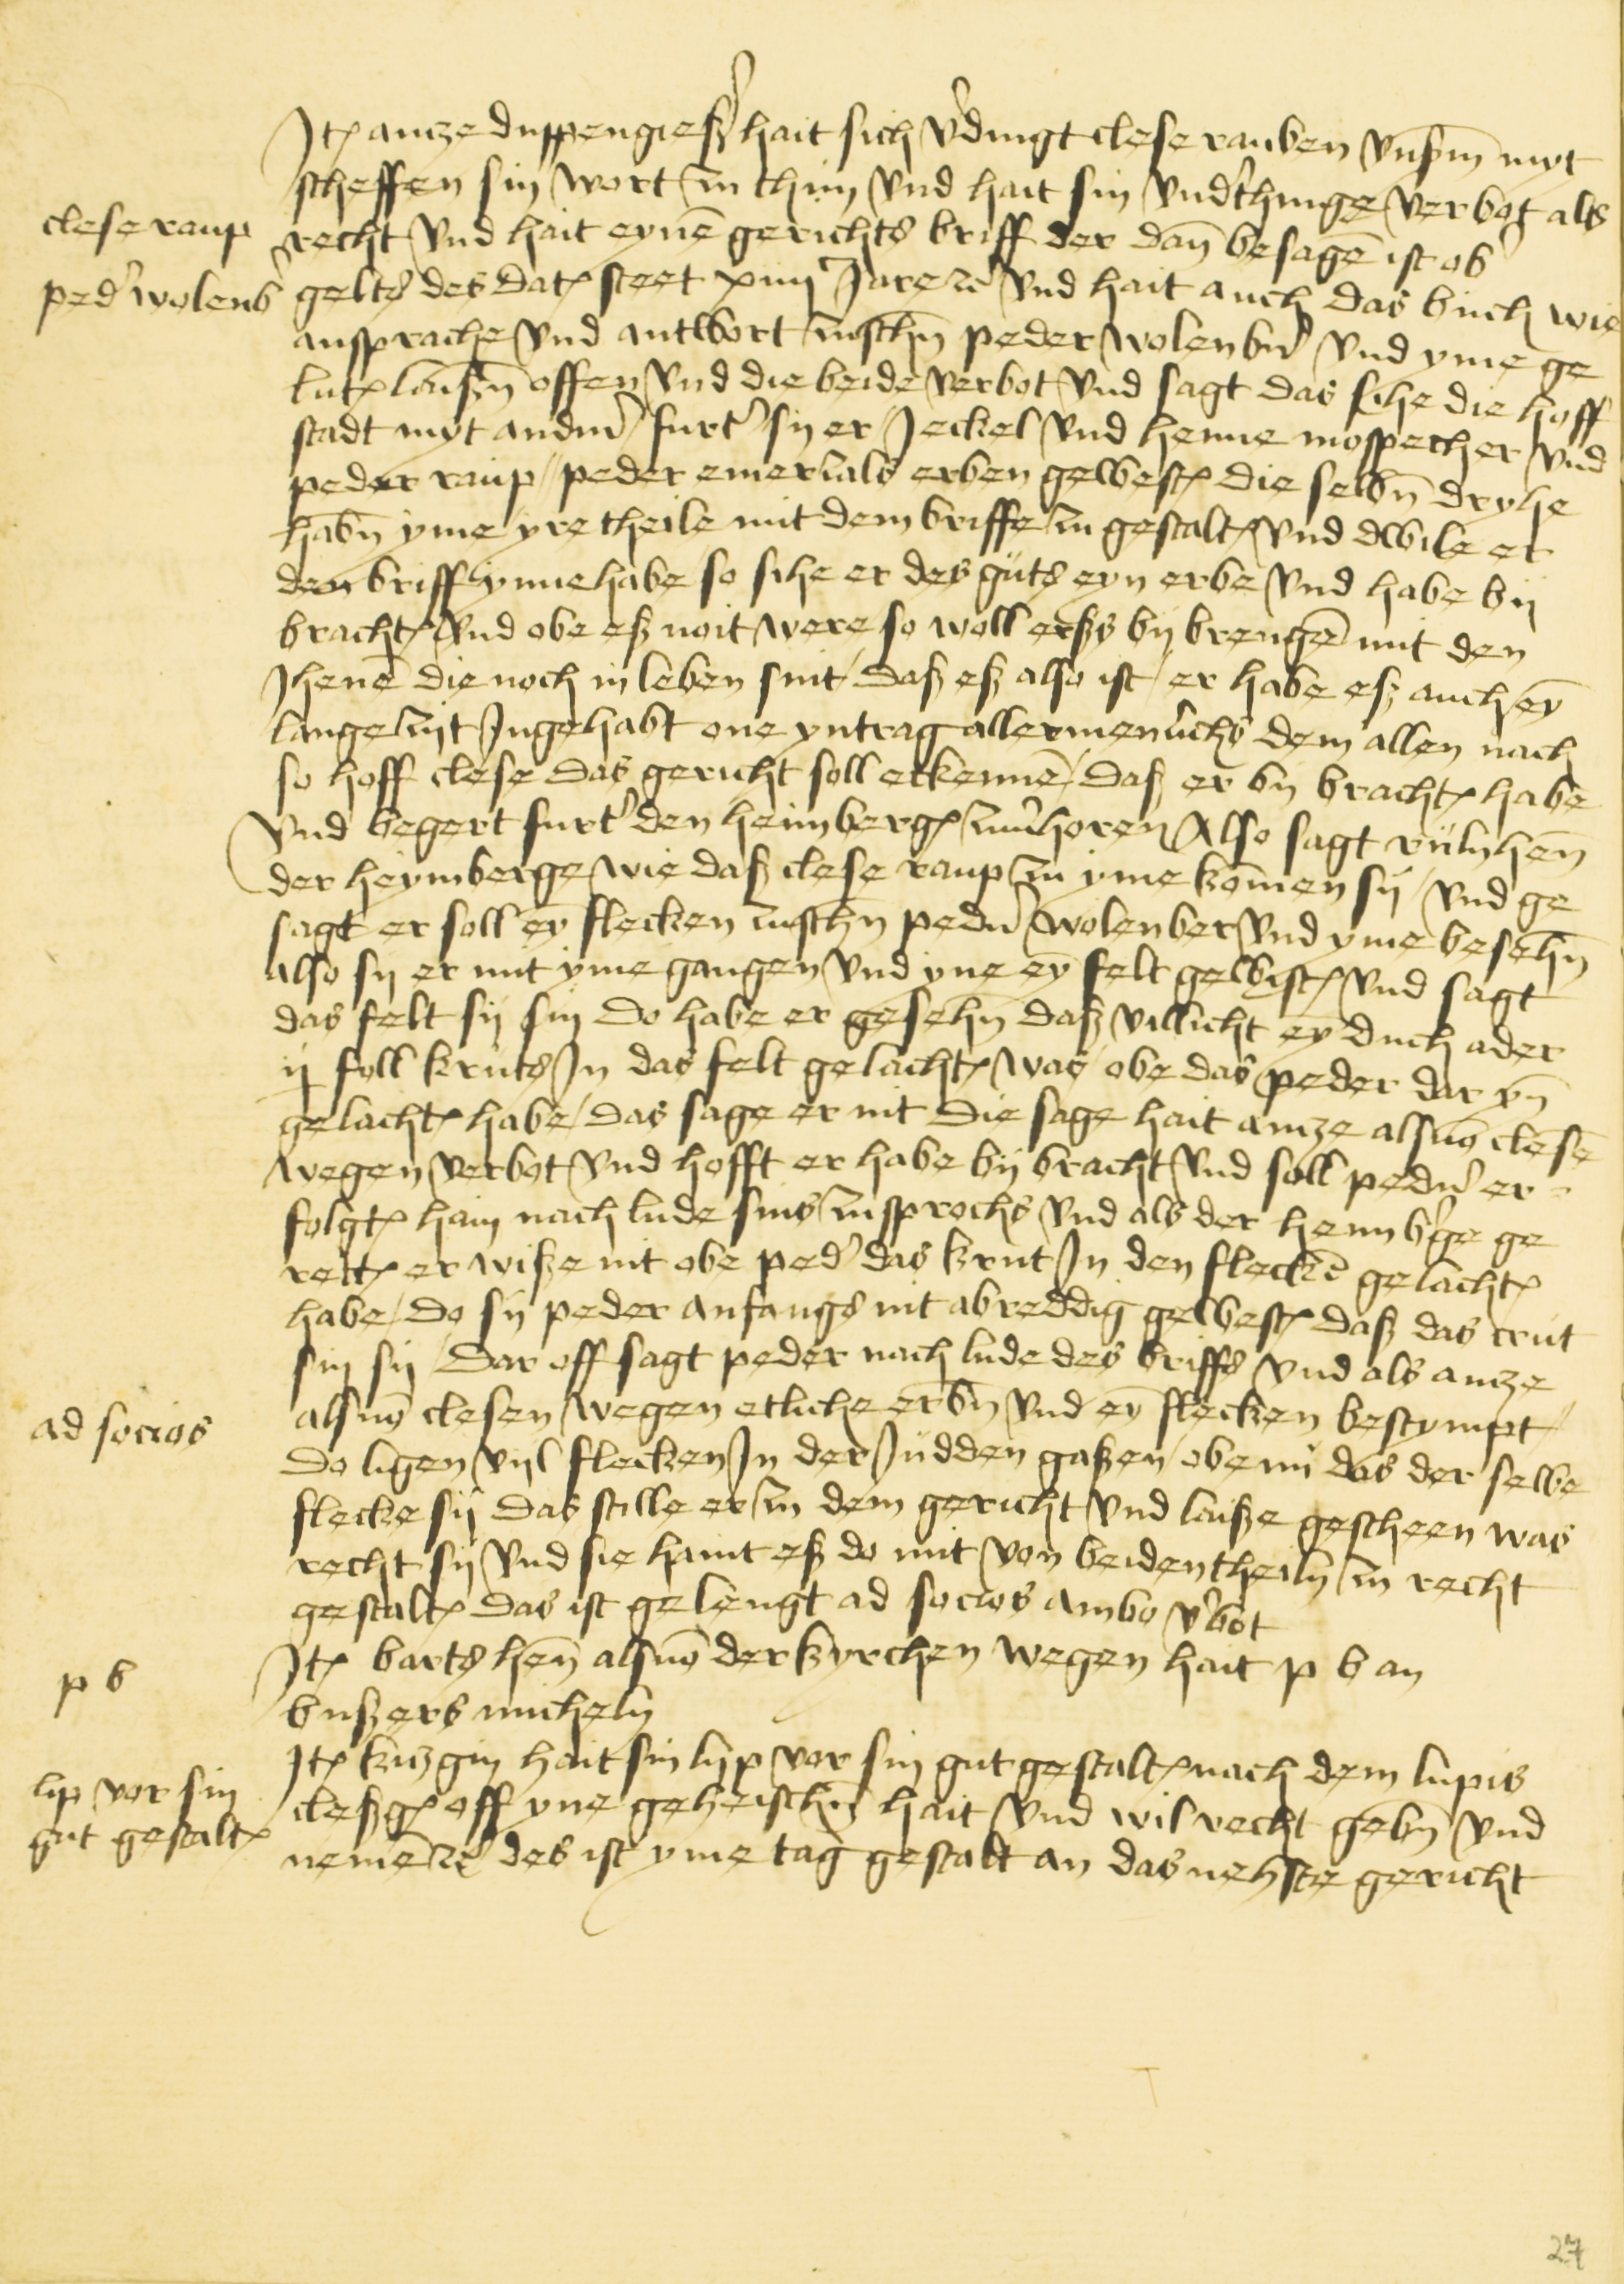 Jt(em) antze duppengieß(er) hait sich v(er)dingt clese rauben vnß(er)m myt
scheffen sin wort zu thun vnd hait sin vnd(er)thinge verbot als
clese raup
recht vnd hait eyne(n) gerichts briff der dan(n) besagen ist ob(er)
ped(er) wolenb(er)
gelts des dat(um) steet xiiij Jare (et)c(etera) vnd hait auch das buch wie
ansprache vnd antwort zusch(e)n peder wolenb(er) vnd yme ge
lut(en) lauß(e)n offen vnd die beide verbot vnd sagt das sihe die hoff
stadt myt and(er)n furt(er) sij er Jeckel vnd henne mospecher vnd
peder raup peder emerichs erben gewest die selb(e)n dryhe
hab(e)n yme yre theile mit dem briffe zu gestalt vnd dwile er
den briff ynne habe so sihe er des guts eyn erbe vnd habe bij
bracht vnd obe eß noit were so woll erßs bij brengen(n) mit den
Jhene(n) die noch in leben sint daß eß also ist er habe eß auch ey(n)
lange zijt Jngehabt one yntrag allermen(n)ichs dem allen nach
so hoff clese das gericht soll erkenne(n) daß er bij bracht habe
vnd begert furt(er) den heimberg(en) zuu(er)horen Also sagt ruln hen(n)
der heymberge wie daß clese raup zu yme komen sij vnd ge
sagt er soll ey(n) flecken zusch(e)n ped(er) wolenber vnd yme beseh(e)n
also sij er mit yme gangen vnd yne ey(n) felt gewist vnd sagt
das felt sij sin do habe er geseh(e)n daß villicht ey(n) duch ader
ij foll kruts Jn das felt gelacht was obe das peder dar yn
gelacht habe das sage er nit die sage hait antze als vo(n) clese(n)
wegen verbot vnd hofft er habe bij bracht vnd soll ped(er) er
folgt hain nach lude sins zusprochs vnd als der heimb(er)ge ge
rett er wiße nit obe ped(er) das krut Jn den flecke(n) gelacht
habe do sij peder anfangs nit abreddig gewest daß das crut
sin sij dar off sagt peder nach lude des briffs vnd als antze
ad socios
als vo(n) clesen wegen etliche erb(e)n vnd ey(n) flecken bestympt
do ligen vijl flecken Jn der Judden gaßen obe nu das der selbe
flecke sij das stille er zu dem gericht vnd lauße gescheen was
recht sij vnd sie haint eß do mit von beiden theiln zu recht
gestalt das ist gelengt ad socios ambo v(er)bot
p b
Jt(em) barts hen(n) als vo(n) der kyrchen wegen hait p b an
bußers micheln
Jt(em) kitzgin hait sin lijp vor sin gut gestalt nach dem lupis
lip vor sin
cleßg(in) off yne geheisch(e)n hait vnd wil recht geb(e)n vnd
gut gestalt
neme(n) (et)c(etera) des ist yme tag gestalt an das nehste gericht
27